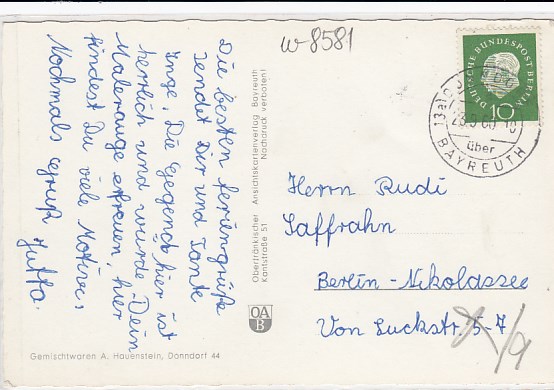 w-8581
Die besten Feriengrüße
sendet Dir und Tante
Inge. Die Gegend hier ist
herrlich und würde Dein
Malerauge erfreuen, hier
findest Du viele Motive.
Nochmals Gruß Jutta.
Oberfränkischer Ansichtskartenverlag Bayreuth
Kantstraße 51 Nachdruck verboten!
OA
B
Gemischtwaren A. Hauenstein, Donndorf 44
DEUTSCHE BUNDESPOST BERLIN
10
über
BAYREUTH
Herrn Rudi
Saffrahn
Berlin-Nikolassee
Von Luckstr. 5-7
/9